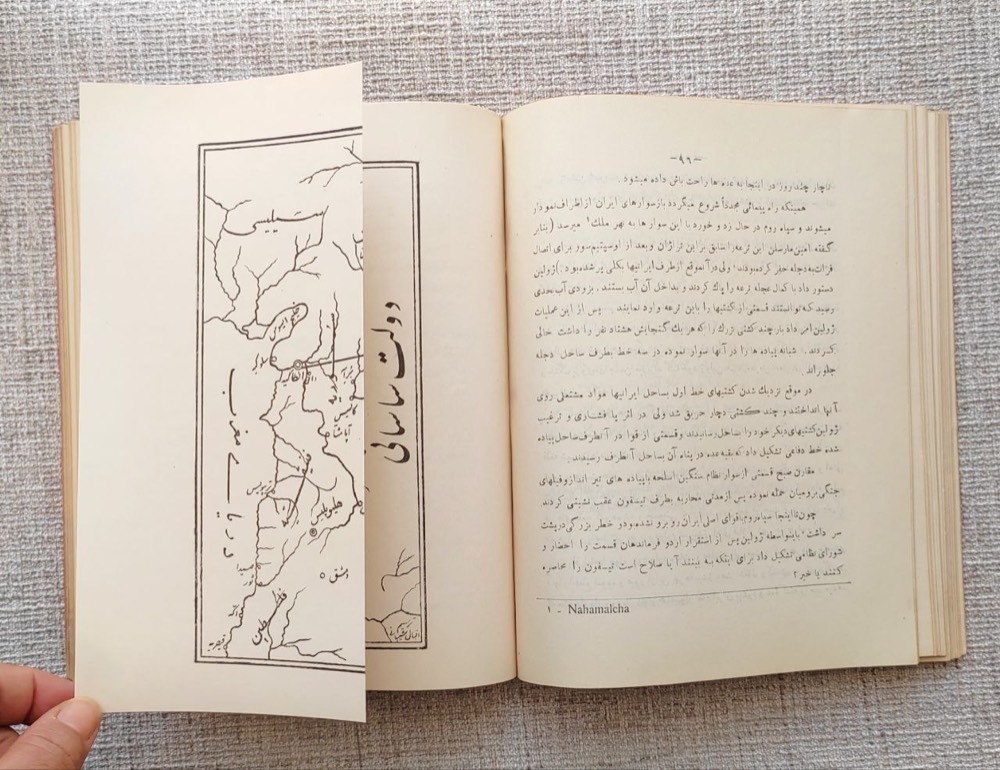 -۹۹-
ناچار چند روز در اینجا به عده ها راحت باش داده میشود
همینکه راه پیمائی مجدداً شروع میگردد باز سوارهای ایران از اطراف نمودار
میشوند و سپاه روم در حال زد و خورد با این سوار ها به نهر ملک۱ میرسد (بنابر
گفته امین مارسلن این ترعه را سابق براین تراژان و بعد از او سپتیم سور برای اتصال
فرات به دجله حفر کرده بودند، ولی در آنموقع از طرف ایرانیها بکلی پر شده بود) ژولین
دستور داد با کمال عجله ترعه را پاک کردند و بداخل آن آب بستند، بزودی آب بحدی
رسید که توانستند قسمتی از کشتیها را باین ترعه وارد نمایند. پس از این عملیات
ژولین امر داد بار چند کشتی بزرگ را که هر یک گنجایش هشتاد نفر را داشت خالی
کردند. شبانه پیاده ها را در آنها سوار نموده در سه خط بطرف ساحل دجله
جلو راند
در موقع نزدیک شدن کشتیهای خط اول بساحل ایرانیها مواد مشتعل روی
آنها انداختند و چند کشتی دچار حریق شد ولی در اثر پافشاری و ترغیب
ژولین کشتیهای دیگر خود را بساحل رسانیدند و قسمتی از قوا در آنطرف ساحل پیاده
شده خط دفاعی تشکیل داد که بقیه عده در پناه آن بساحل آنطرف رسیدند
مقارن صبح قسمتی از سوار نظام سنگین اسلحه با پیاده های تیر انداز و فیلهای
جنگی برومیان حمله نموده پس از مدتی محاربه بطرف تیسفون عقب نشینی کردند
چون تا اینجا سپاه روم با قوای اصلی ایران رو برو نشده و دو خطر بزرگی در پشت
سر داشت، باینواسطه ژولین پس از استقرار اردو فرماندهان قسمت را احضار و
شورای نظامی تشکیل داد برای اینکه به بینند آیا صلاح است تیسفون را محاصره
کنند یا خیر؟
۱ - Nahamalcha
دولت ساسانی
سیلیس
خلیج ایسوس
دریای مغرب
هلیوپلیس
دمشق
فلسطین
قیصریه